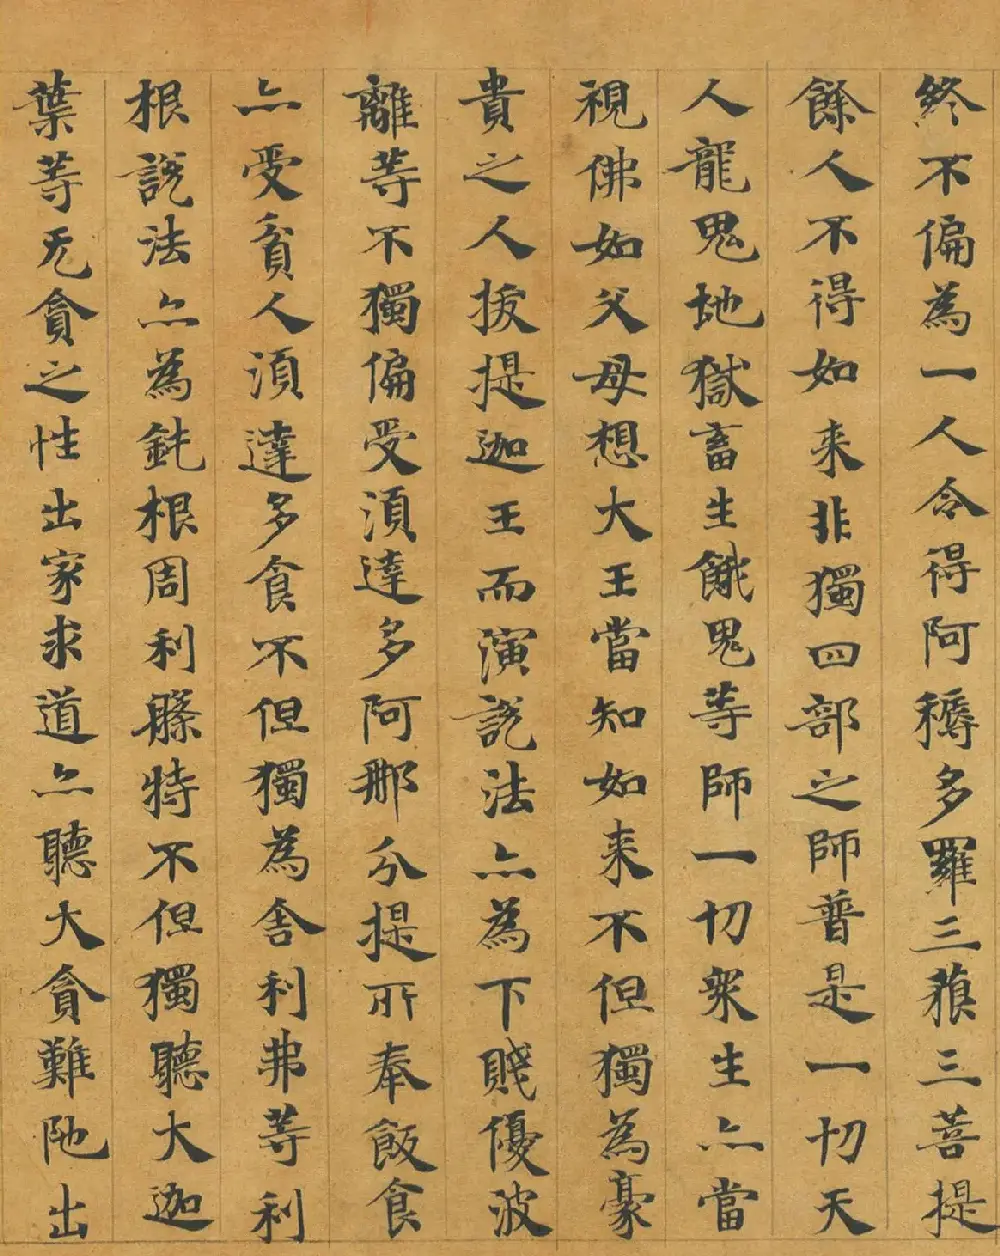 終不偏為一人令得阿耨多羅三藐三菩提
餘人不得如来非獨四部之師普是一切天
人龍鬼地獄畜生餓鬼等師一切衆生亦當
視佛如父母想大王當知如来不但獨為豪
貴之人拔提迦王而演説法亦為下賤優波
離等不獨偏受湏達多阿那邠提所奉飯食
亦受貧人湏達多食不但獨為舎利弗等利
根説法亦為鈍根周利槃特不但獨聽大迦
葉等无貪之性出家求道亦聽大貪難陁出